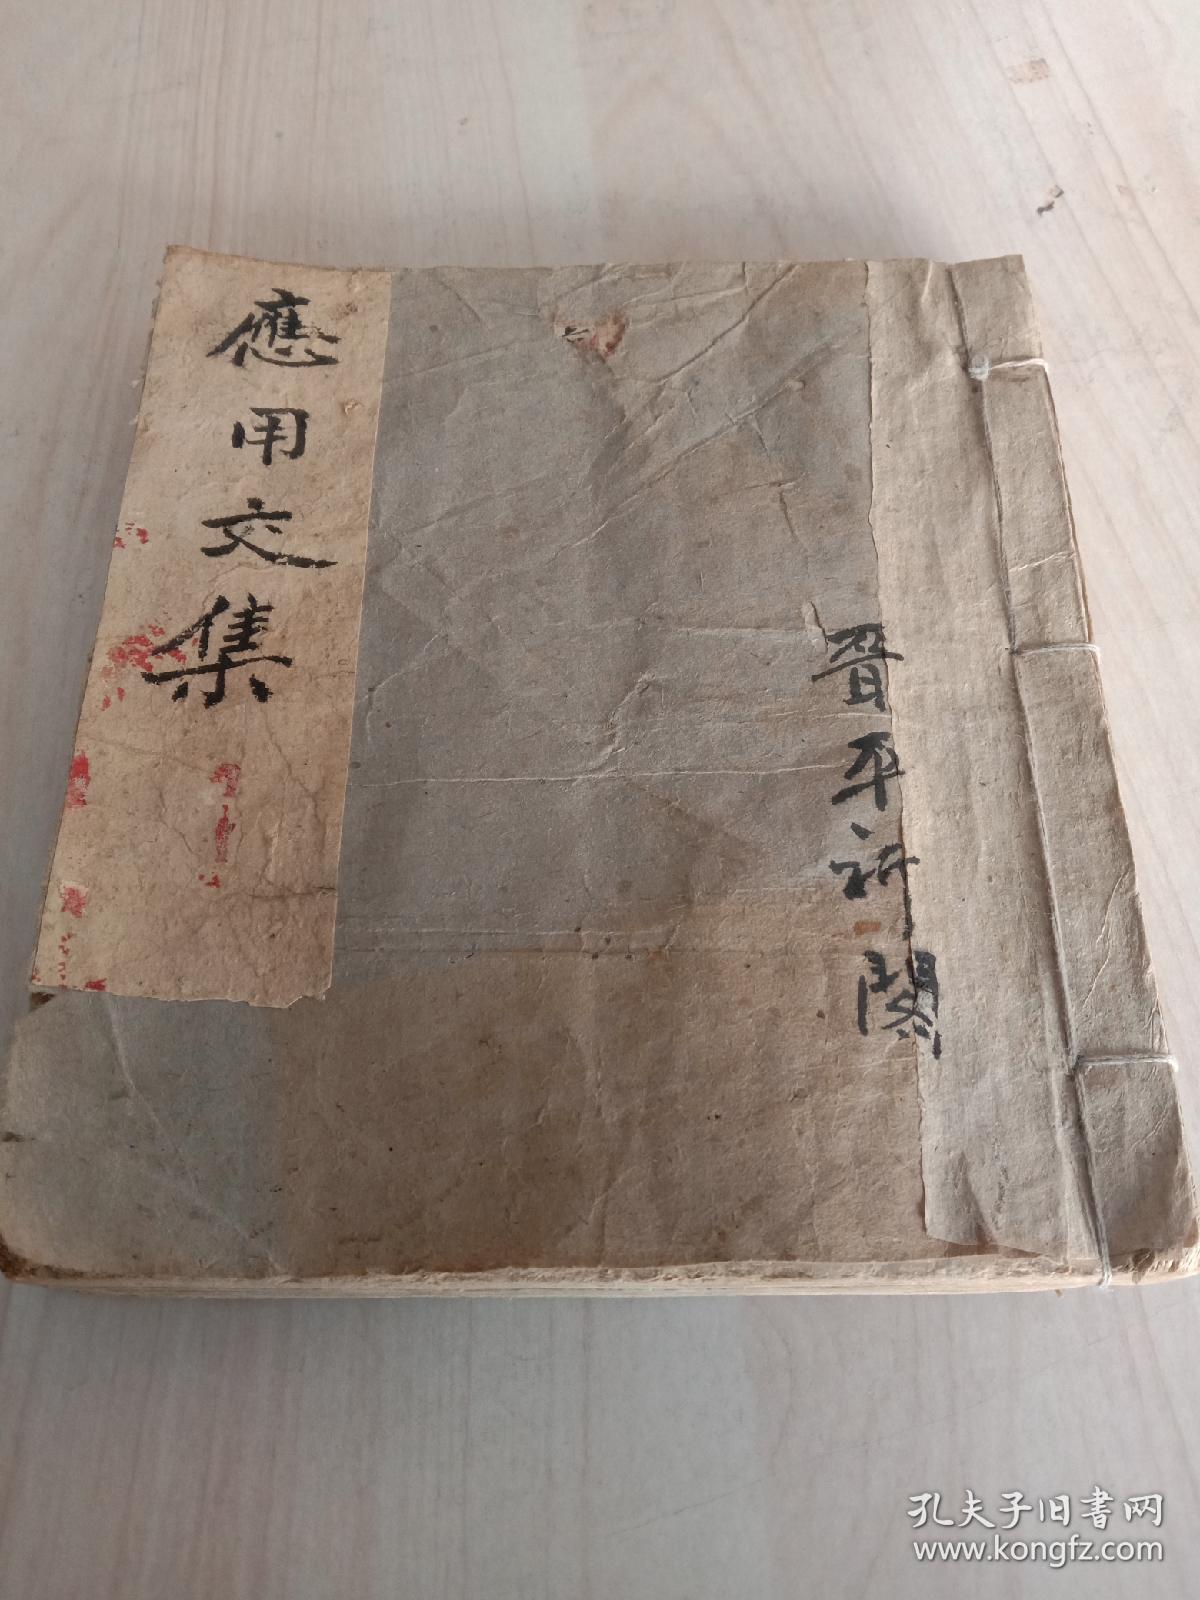 應用文集
晋平祈閣
孔夫子旧书网
www.kongfz.com